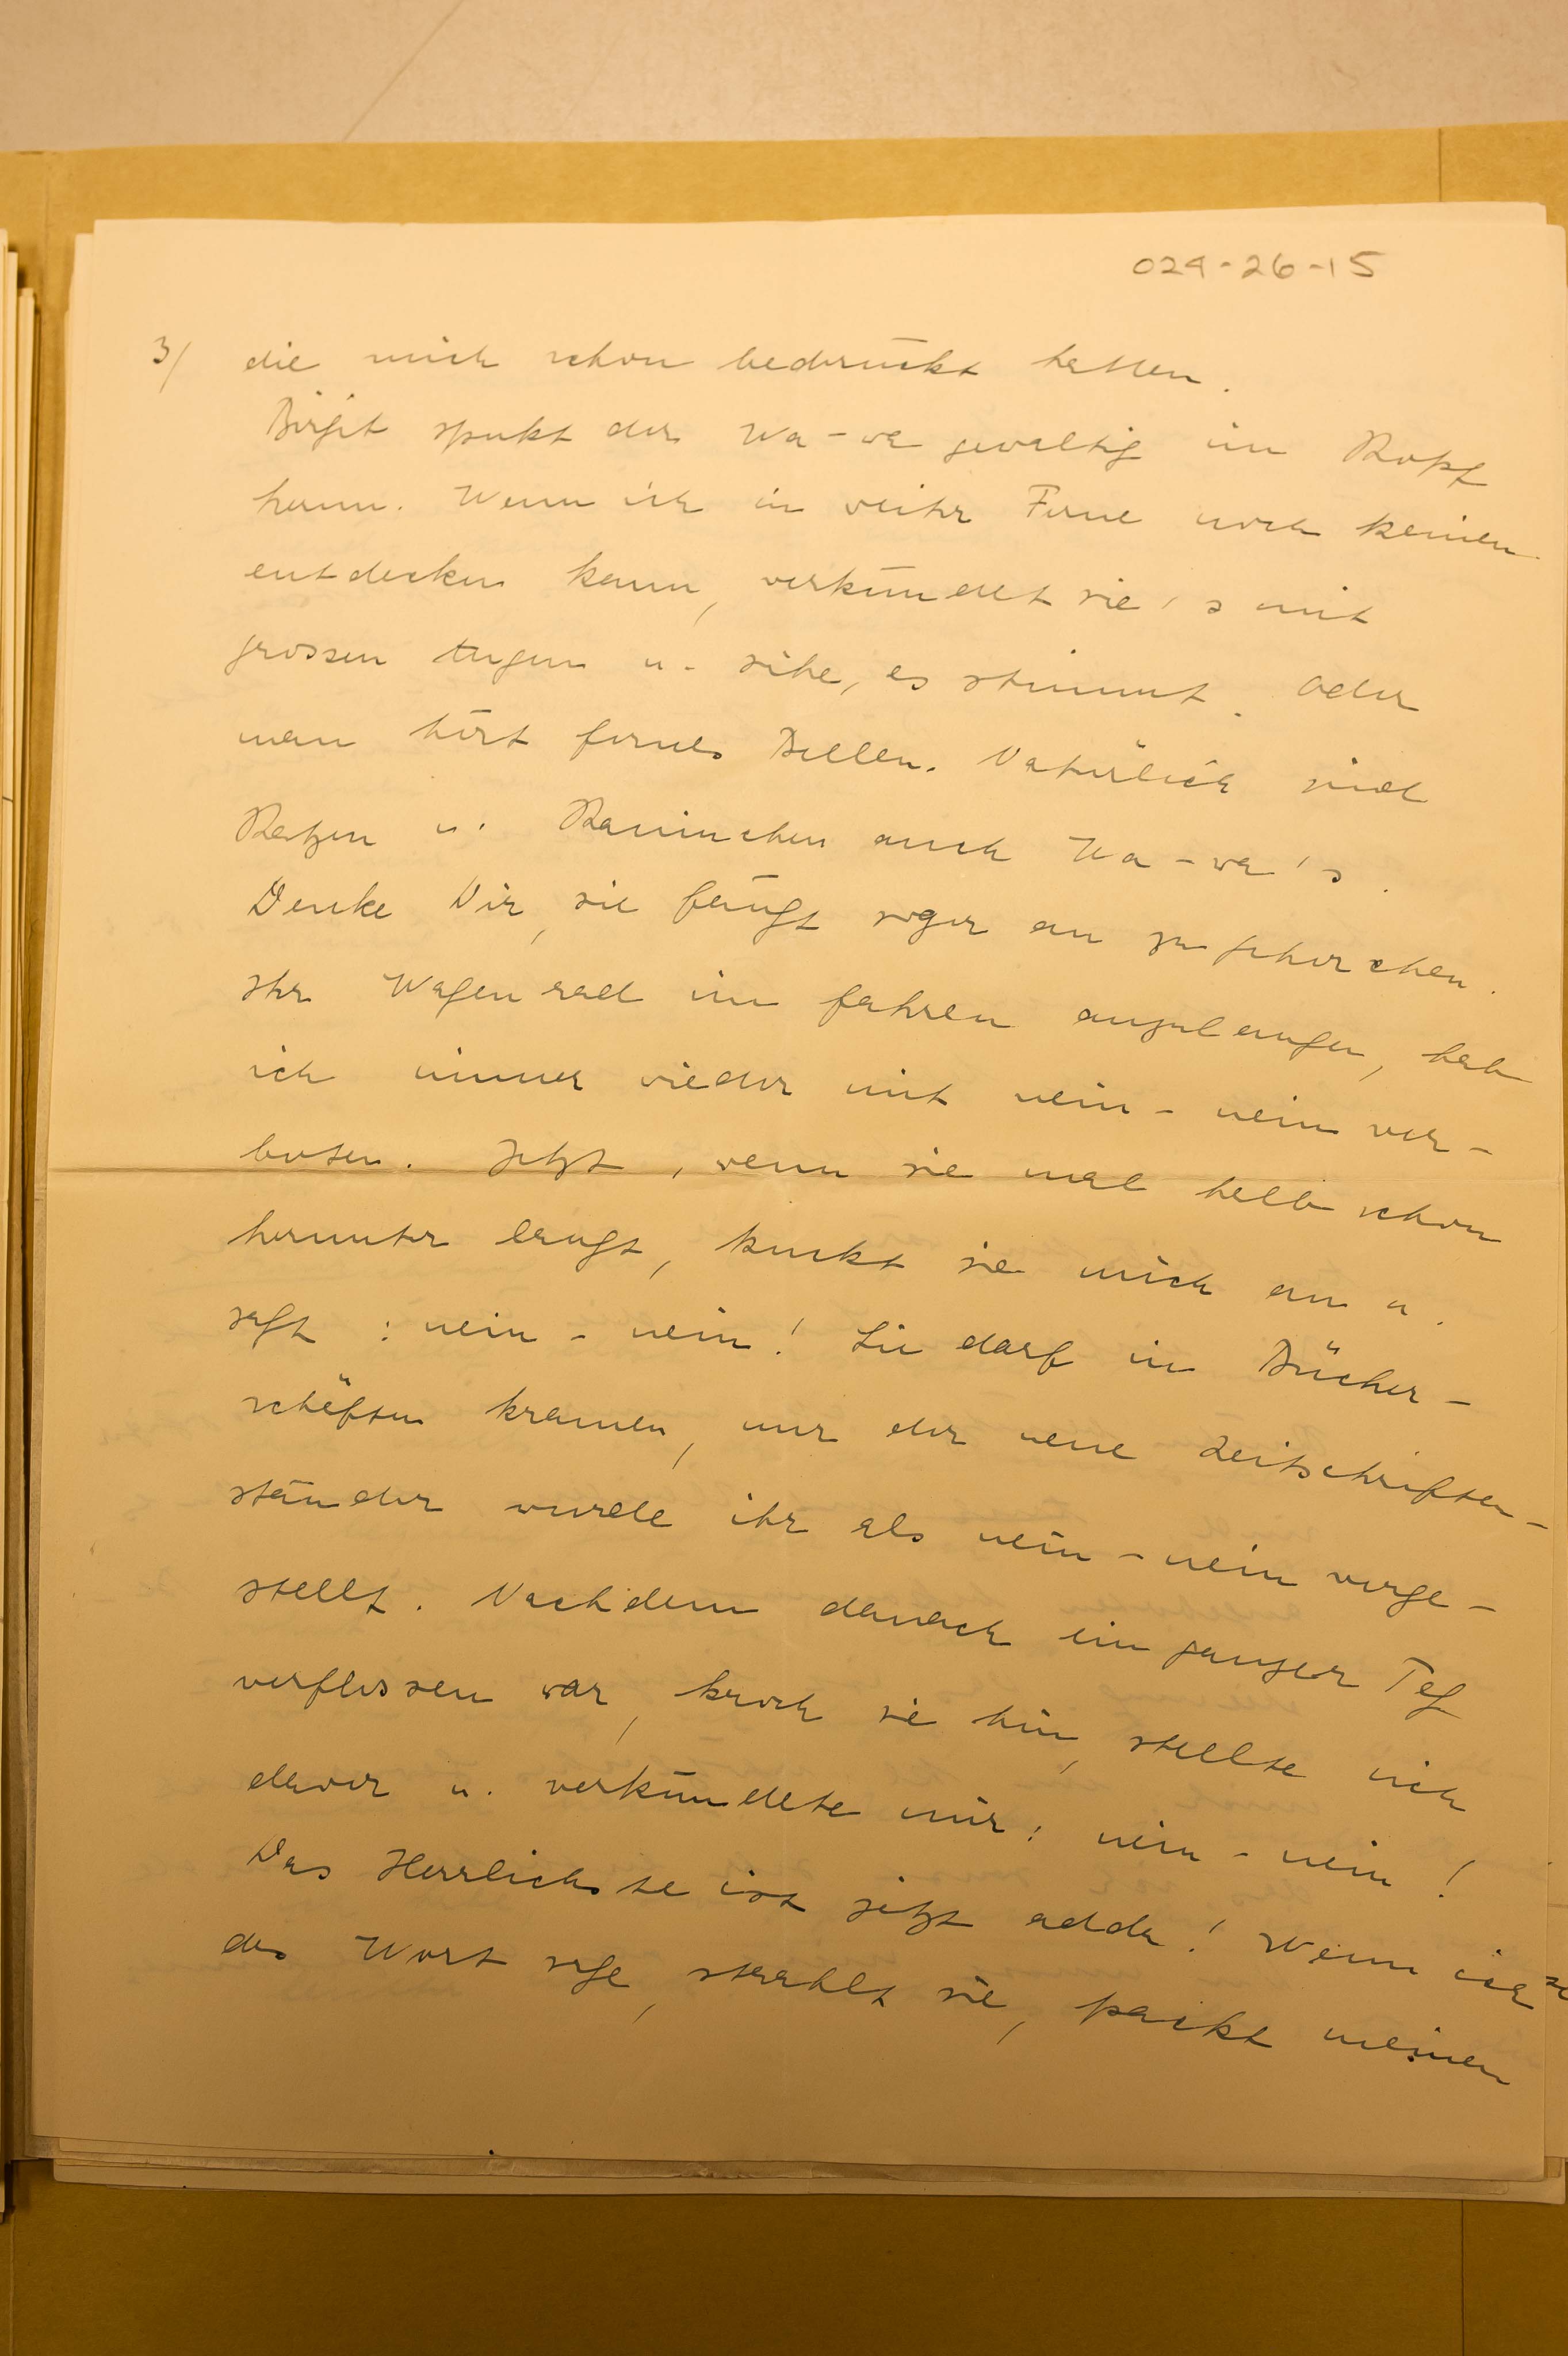 024-26-15
3/ die mich schon bedrückt hatten.
Birgit spukt der Wa-wa gewaltig im Kopf
herum. Wenn ich in weiter Ferne noch keinen
entdecken kann, verkündet sie's mit
grossen Augen u. siehe, es stimmt. Oder
man hört fernes Bellen. Natürlich sind
Katzen u. Kaninchen auch Wa-wa's.
Denke Dir, sie fängt sogar an zu gehorchen.
Ihr Wagenrad im fahren anzulangen, hab
ich immer wieder mit nein-nein ver-
boten. Jetzt, wenn sie mal halb schon
herunter langt, kuckt sie mich an u.
sagt: nein-nein! Sie darf in Bücher-
schäften kramen, nur der neue Zeitschriften-
ständer wurde ihr als nein-nein vorge-
stellt. Nachdem danach ein ganzer Tag
verflossen war, kroch sie hin, stellte sich
davor u. verkündete mir: nein-nein!
Das Herrlichste ist jetzt adda! Wenn ich
das Wort sage, strahlt sie, packt meinen